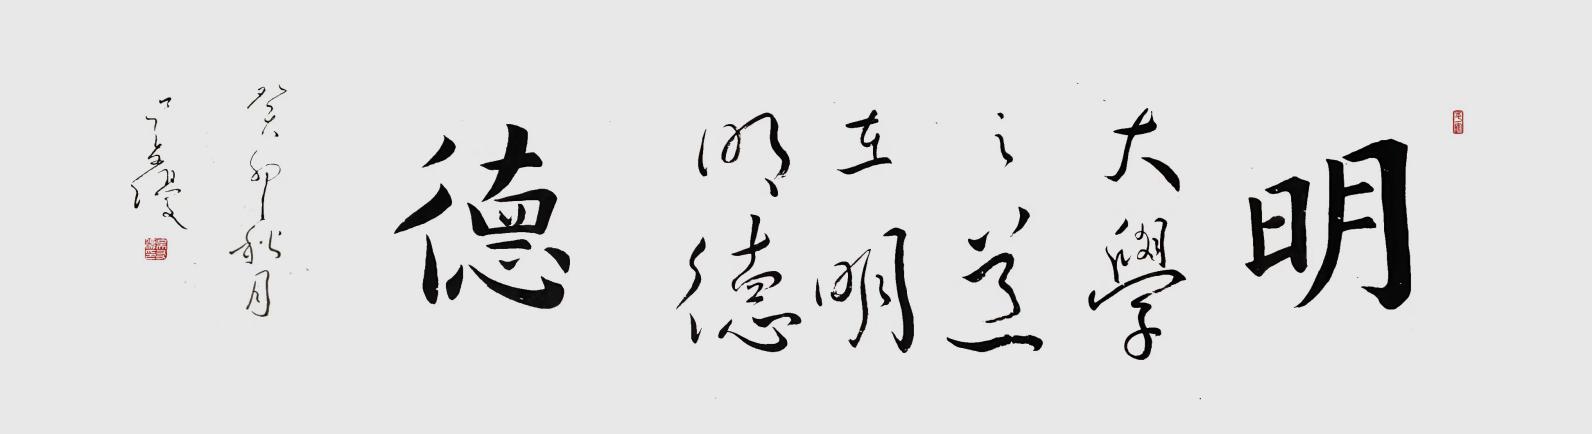 明
大學
之道
在明
明德
德
癸卯秋月